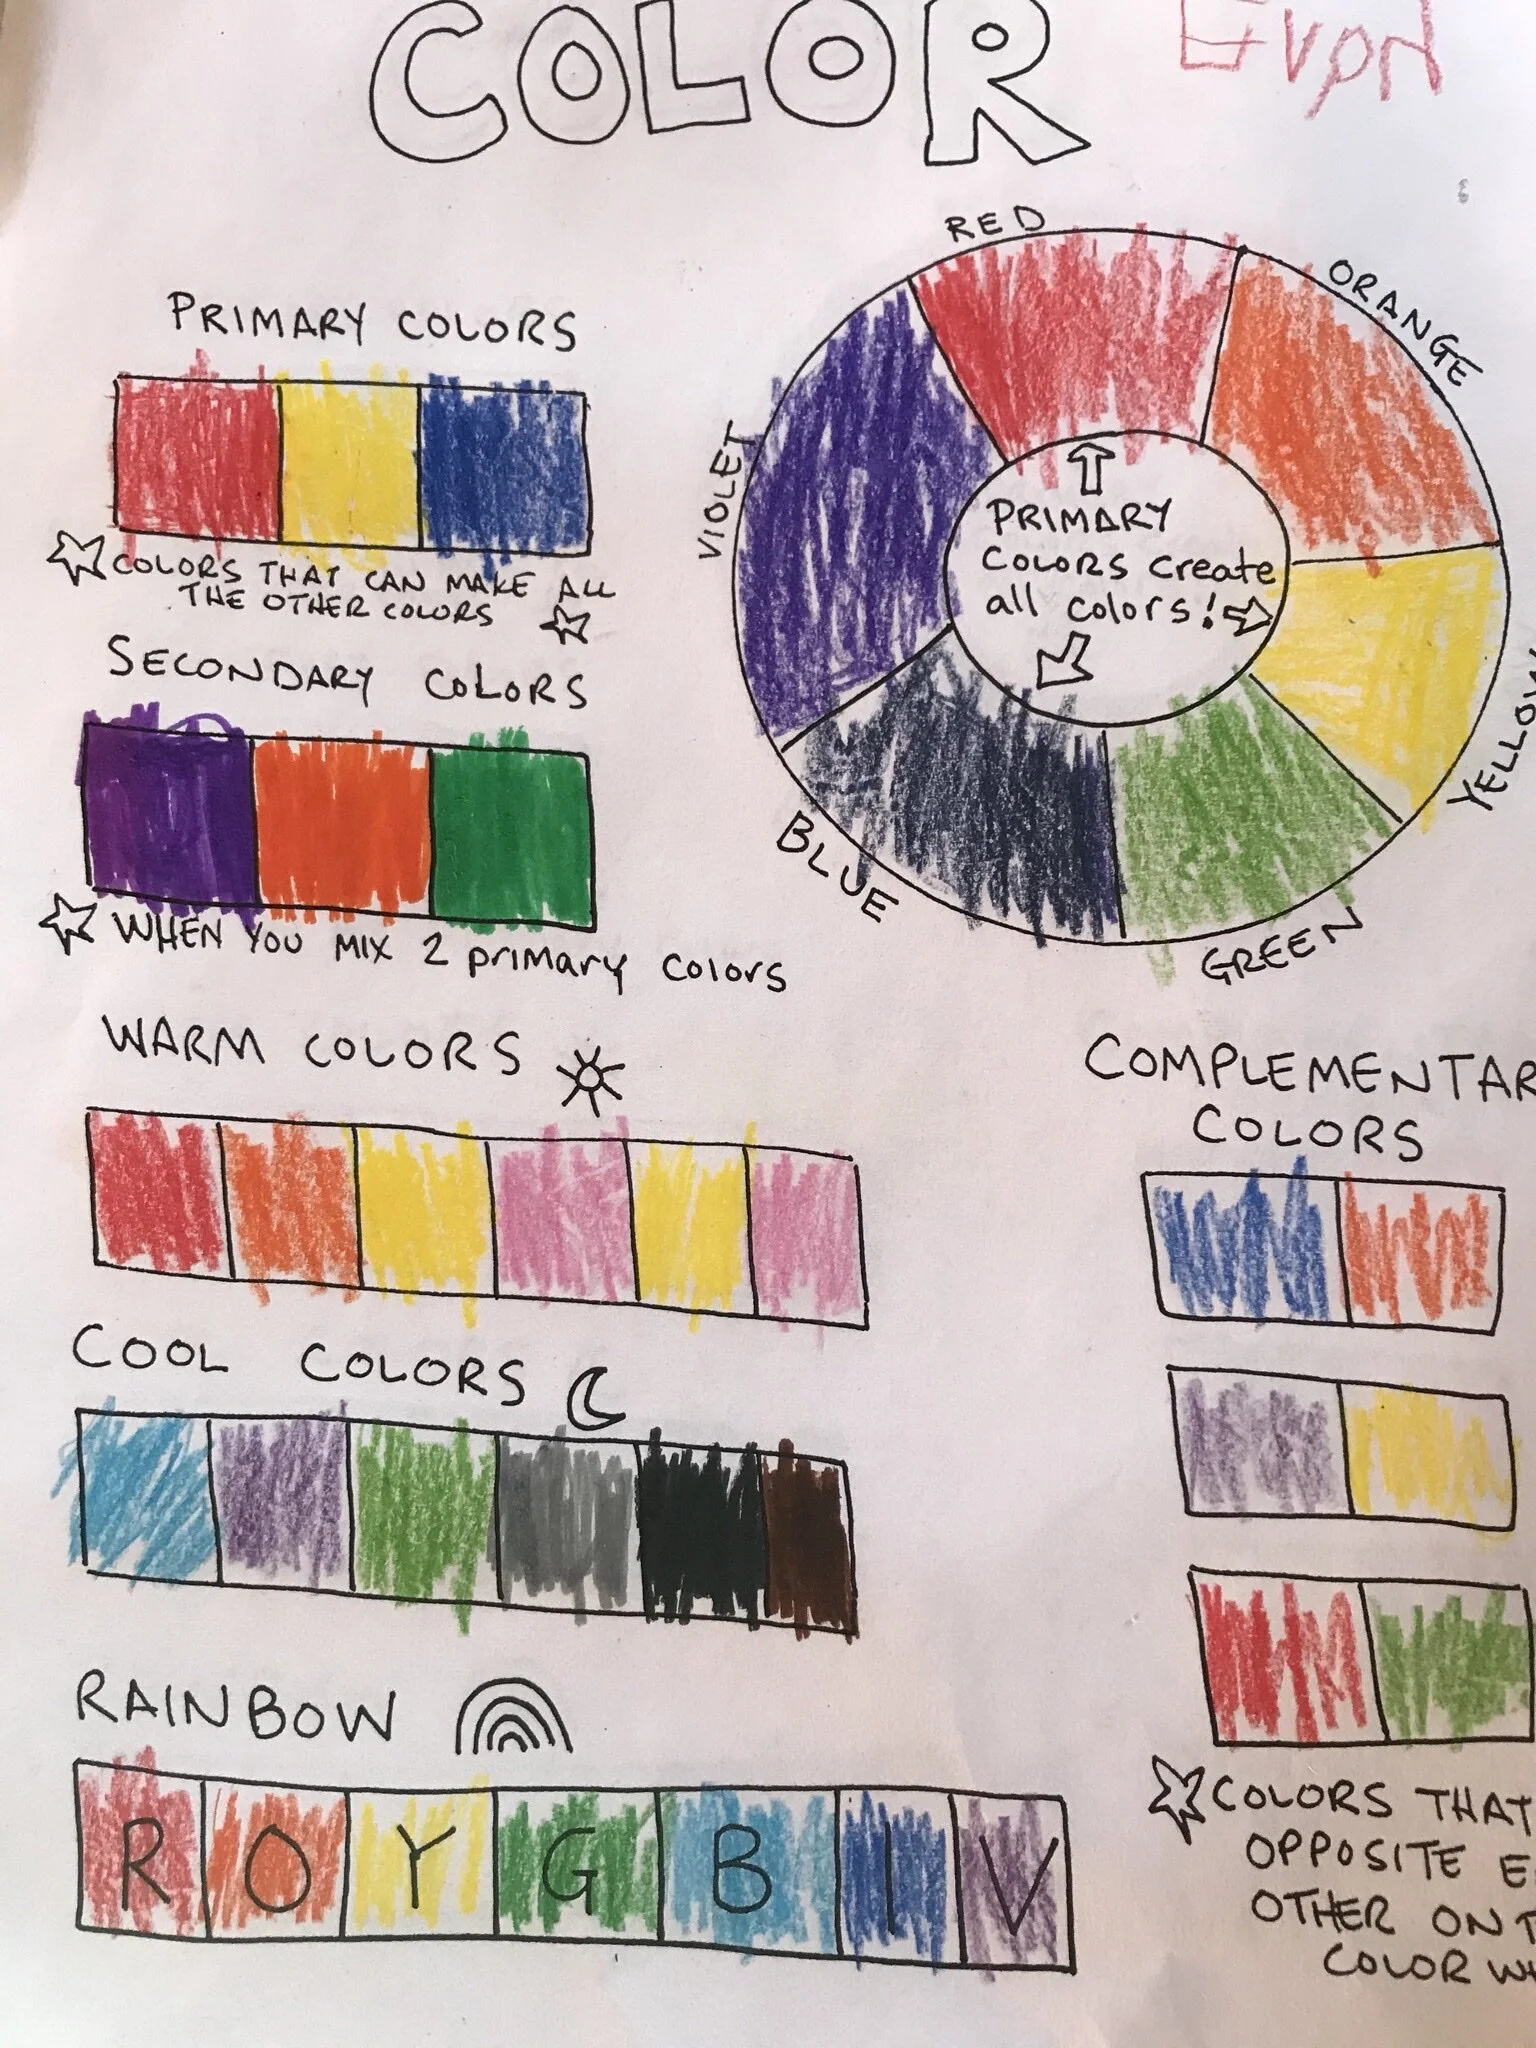 COLOR
Evan
PRIMARY COLORS
COLORS THAT CAN MAKE ALL
THE OTHER COLORS
SECONDARY COLORS
WHEN YOU MIX 2 primary colors
RED
ORANGE
YELLOW
GREEN
BLUE
VIOLET
PRIMARY
COLORS create
all colors!
WARM COLORS
COOL COLORS
RAINBOW
R O Y G B I V
COMPLEMENTAR
COLORS
COLORS THAT
OPPOSITE E
OTHER ON T
COLOR WH